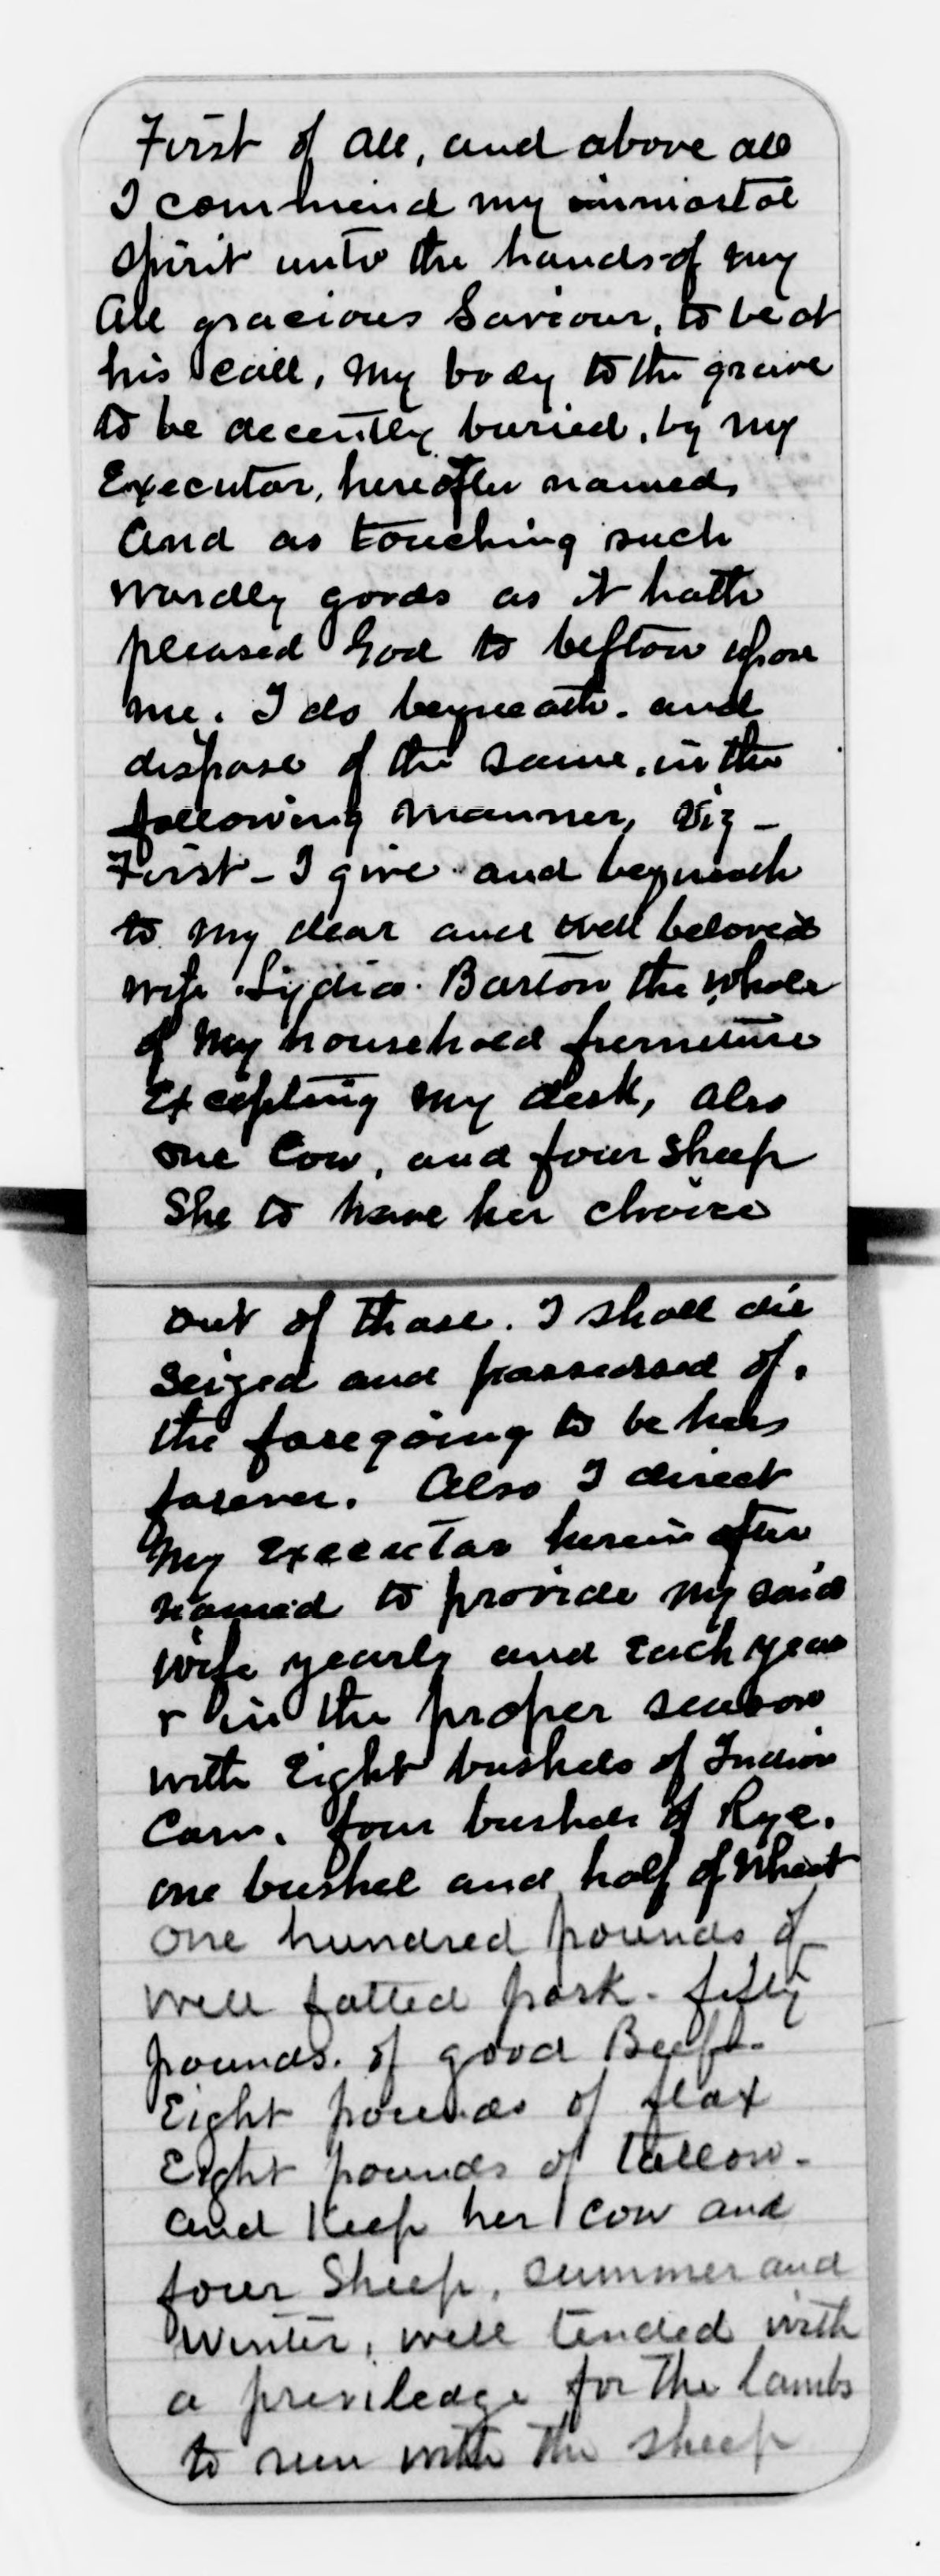 First of all, and above all
I commend my immortal
spirit unto the hands of my
All gracious Saviour, to be at
his call, my body to the grave
to be decently buried, by my
Executor, hereafter named,
And as touching such
wordly goods as it hath
pleased God to bestow upon
me. I do bequeath. and
dispose of the same, in the
following manner, Viz -
First - I give and bequeath
to my dear and well beloved
wife Lydia Barton the whole
of my household furniture
Excepting my desk, also
one Cow, and four sheep
She to have her choice
out of those. I shall die
seized and possessed of.
the foregoing to be hers
forever. Also I direct
my executor herein after
named to provide my said
wife yearly and each year
r in the proper season
with Eight bushels of Indian
Corn. four bushels of Rye.
one bushel and half of Wheat
one hundred pounds of
well fatted pork - fifty
pounds. of good Beef -
Eight pounds of flax
Eight pounds of tallow -
and Keep her cow and
four Sheep, summer and
Winter, well tended with
a priviledge for the lambs
to run with the sheep